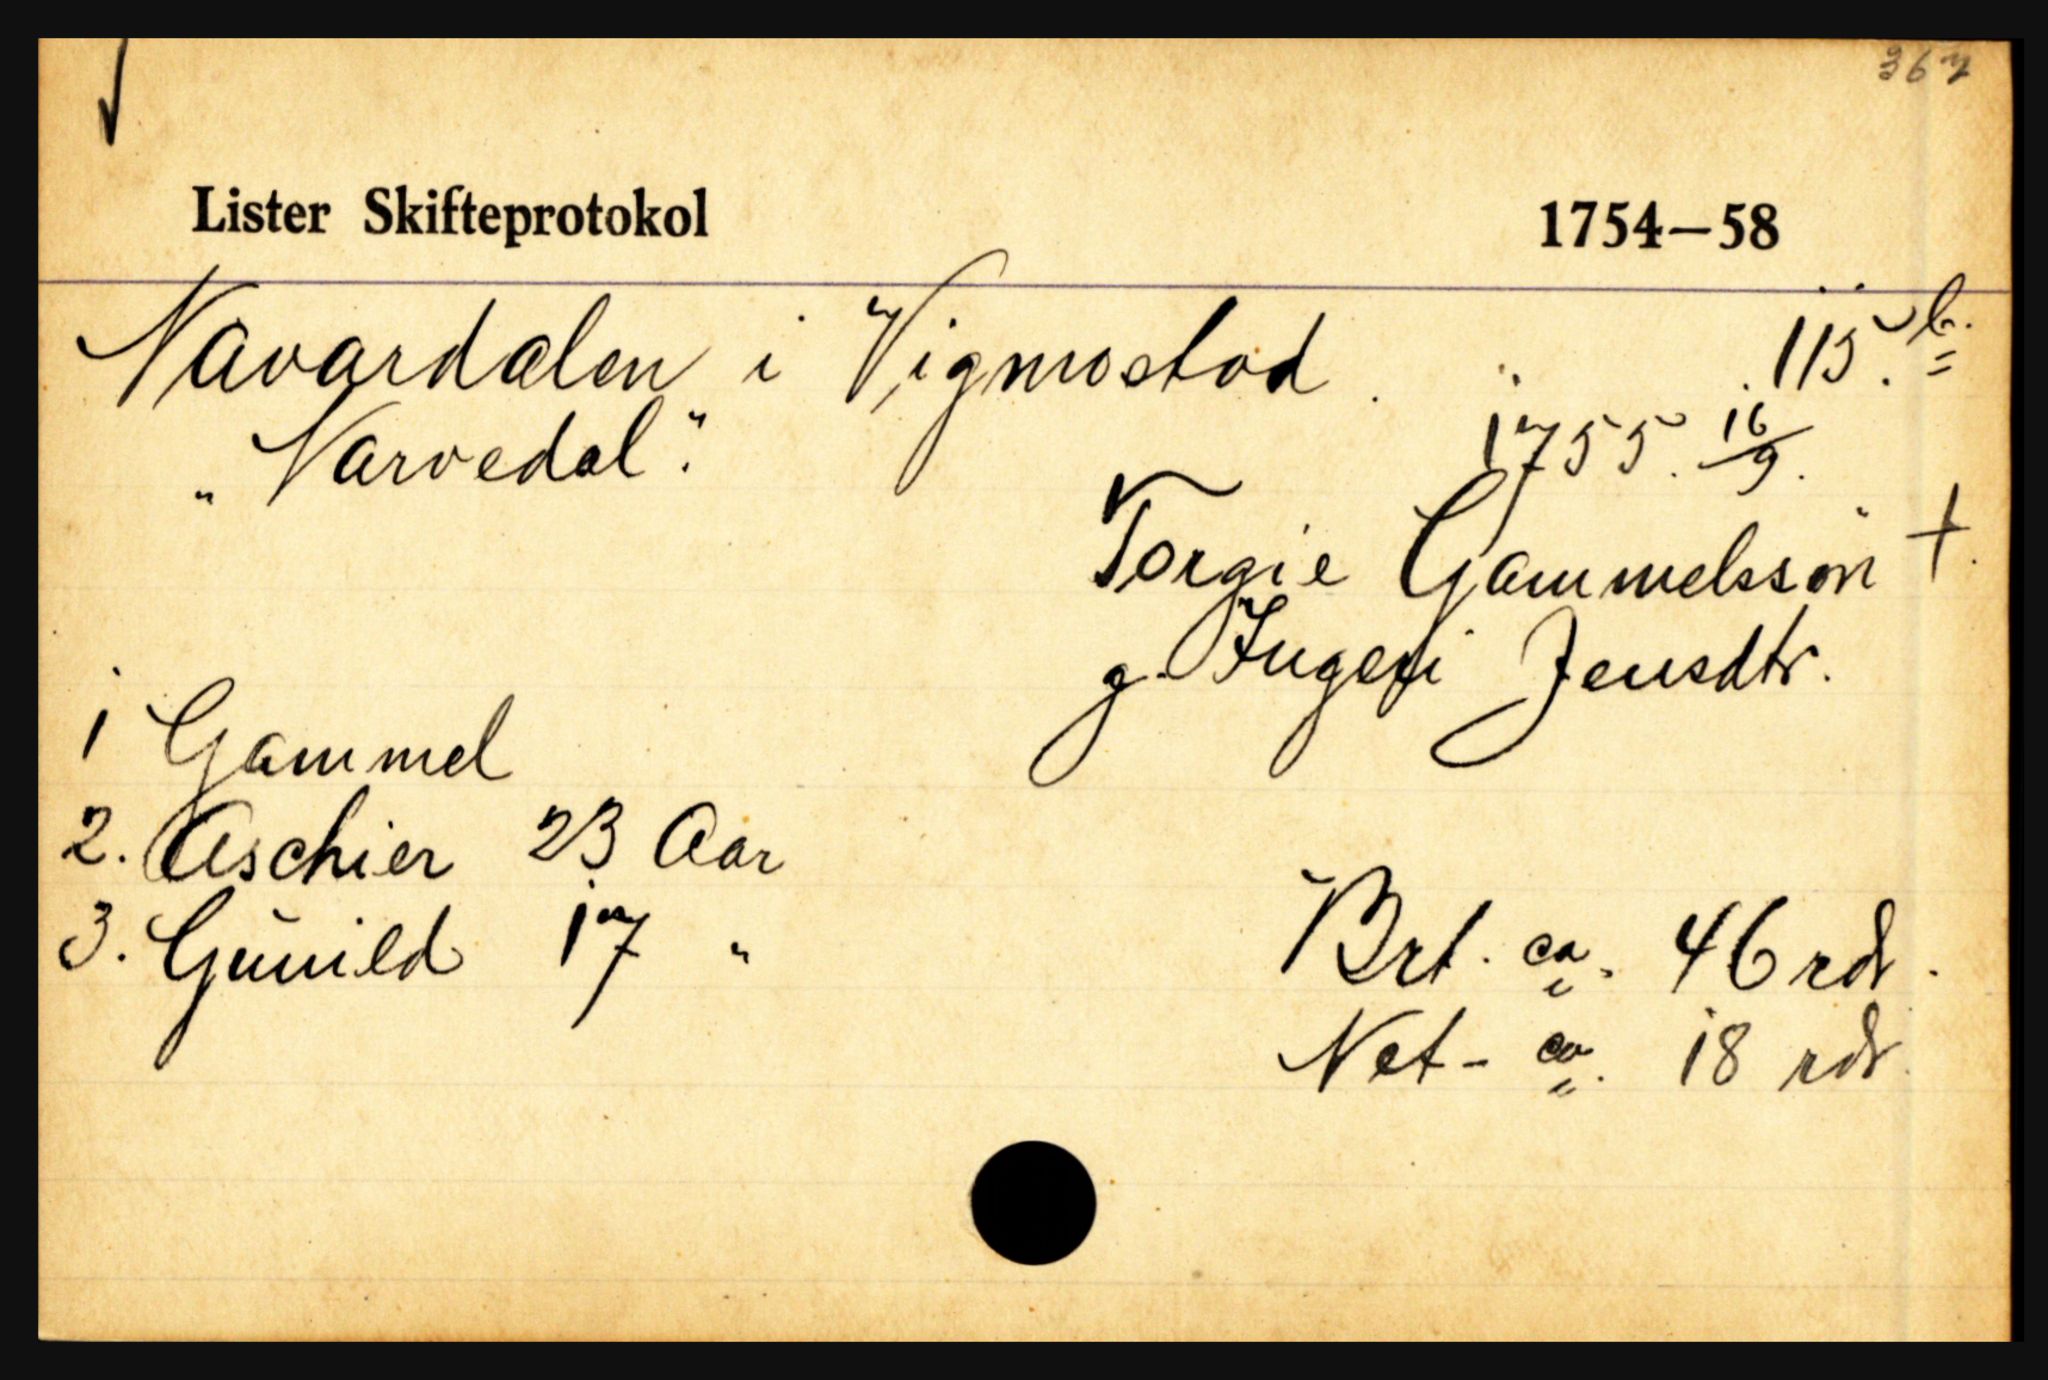 367
Lister Skifteprotokol 1754—58
Navardalen i Vigmostad. 115. b.
"Narvedal". 1755. 16/9.
Torgie Gammelssøn +.
g. Ingeri Jensdtr.
1 Gammel
2. Aschier 23 Aar
3. Gunild 17 "
Brt. ca. 46 rdr.
Net - ca. 18 rdr.